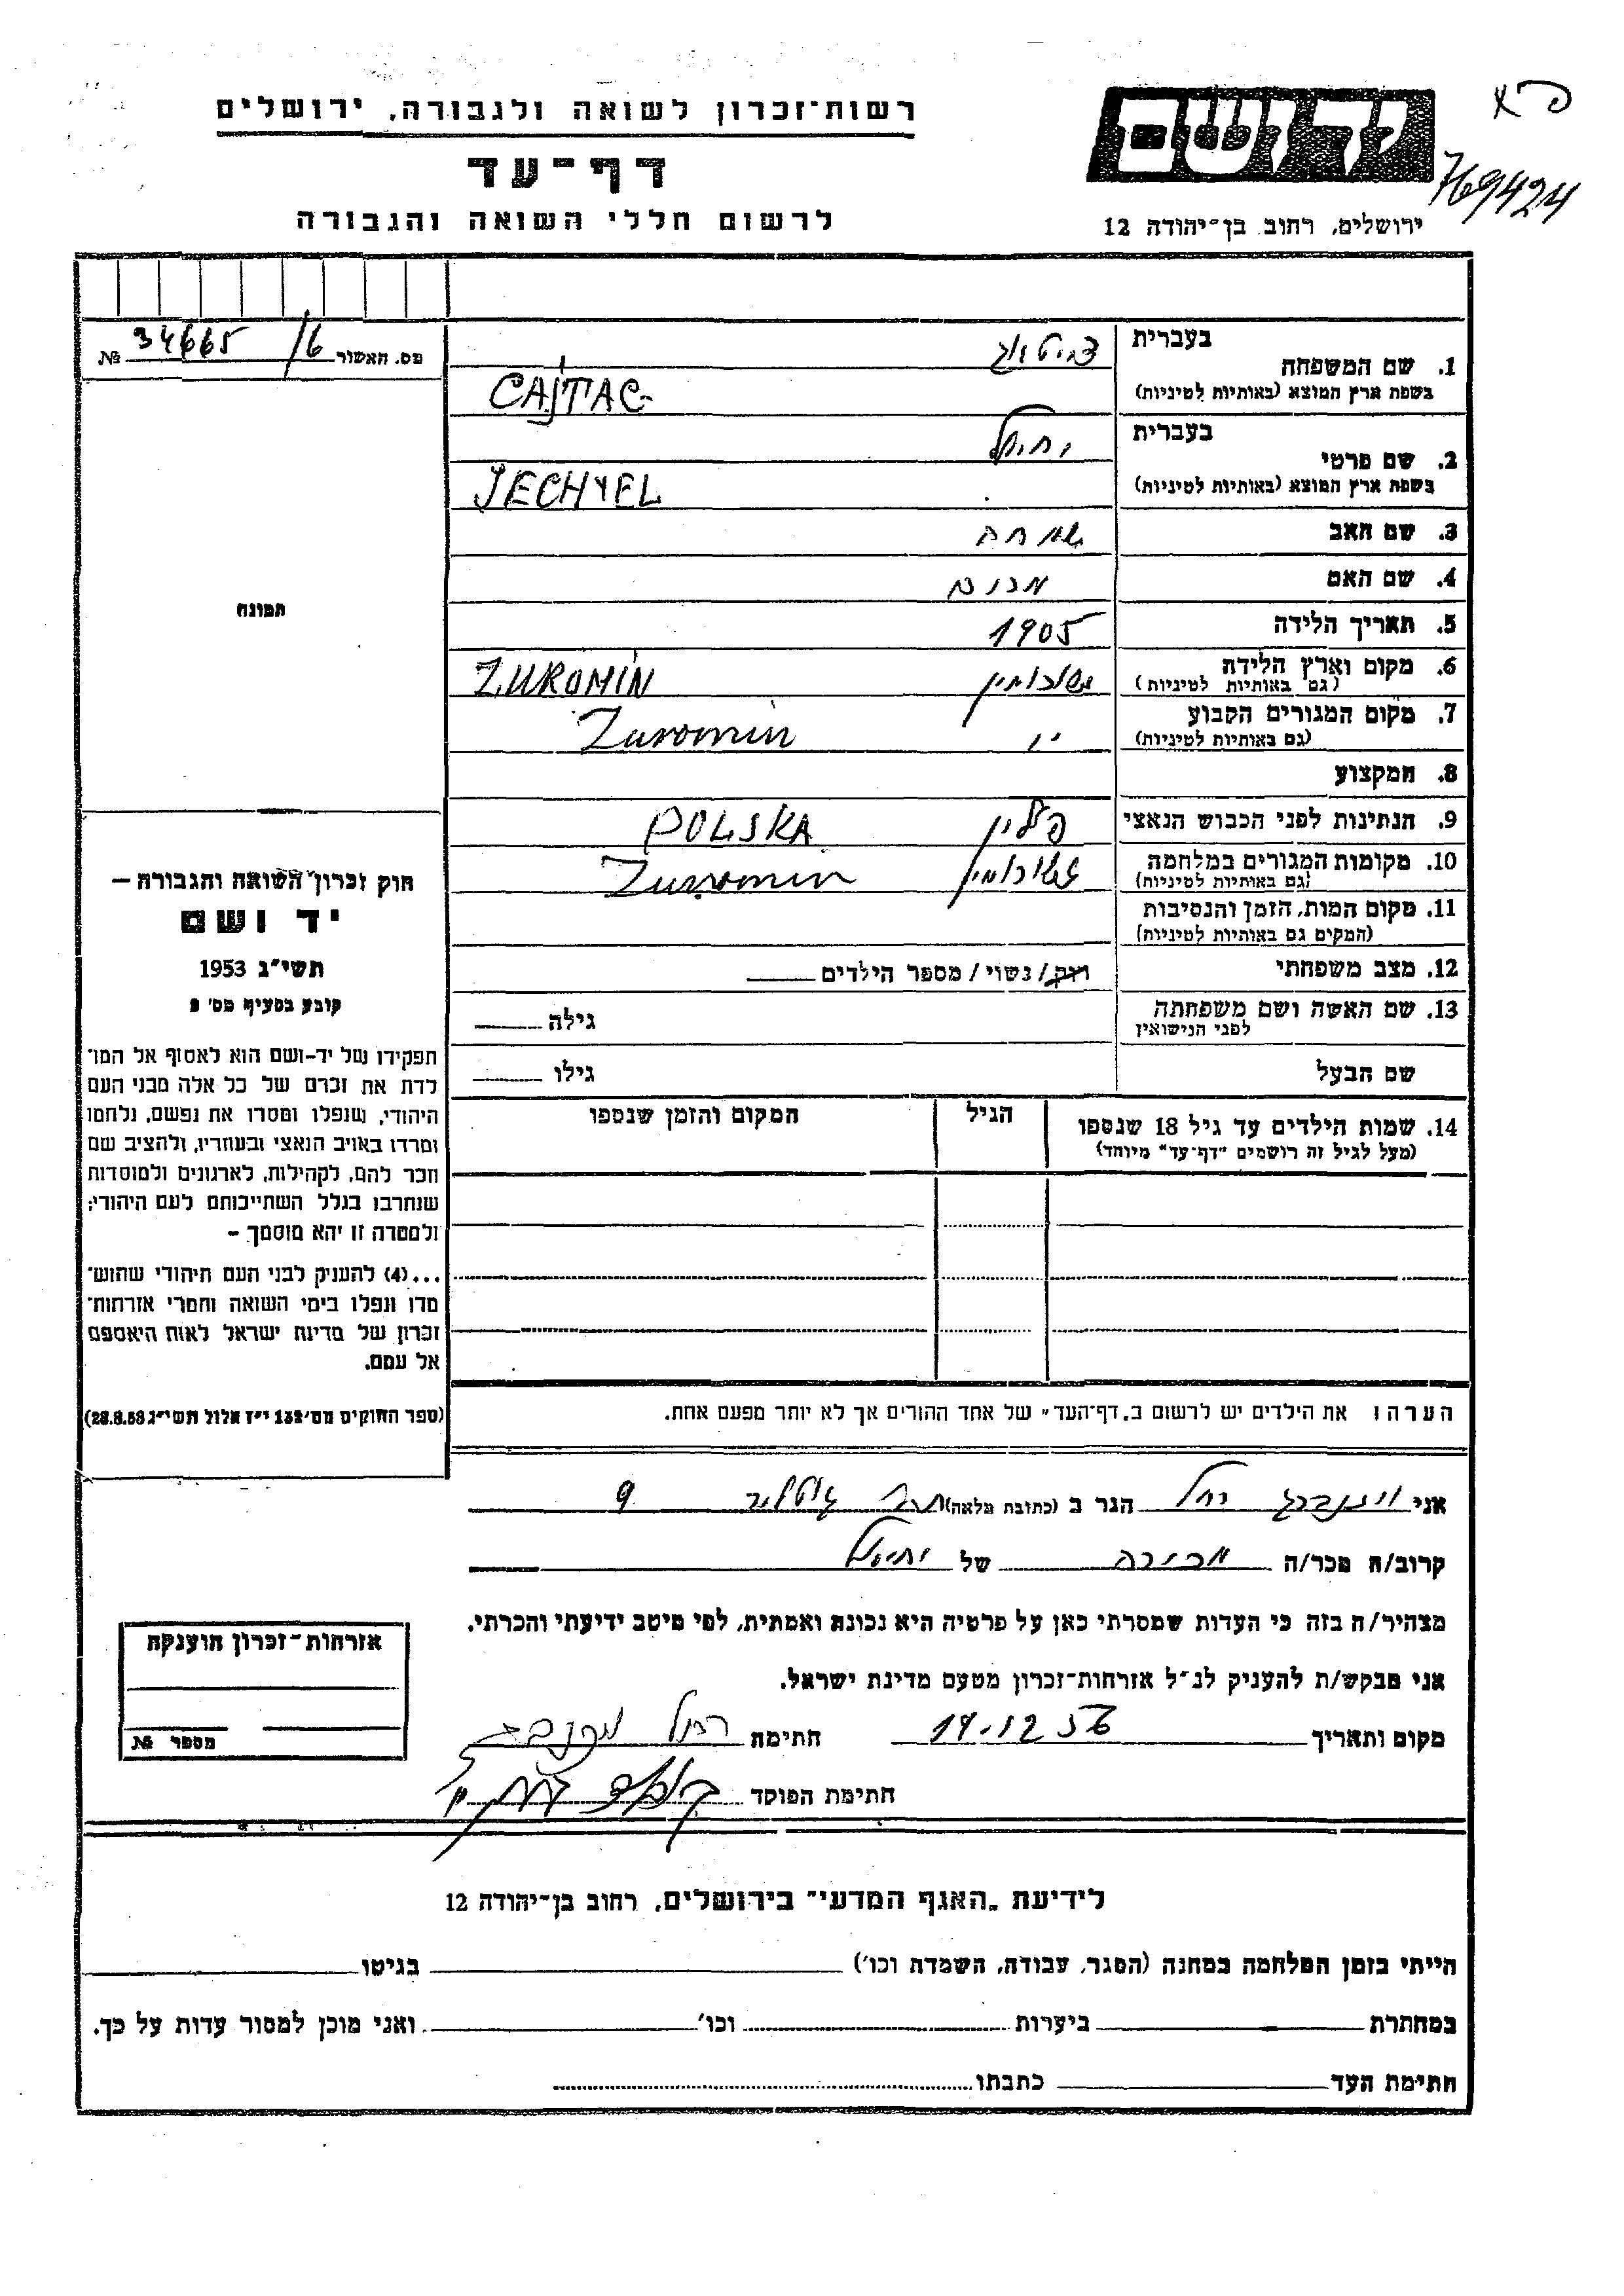 רשות־זכרון לשואה ולגבורה, ירושלים
דף־עד
לרשום חללי השואה והגבורה
יד ושם
769424
ירושלים, רחוב בן־יהודה 12
מס. האשור 34665/6 №
תמונה
1. שם המשפחה
בעברית
בשפת ארץ המוצא (באותיות לטיניות) CAJTAG
2. שם פרטי
בעברית יחיאל
בשפת ארץ המוצא (באותיות לטיניות) JECHYEL
3. שם האב שמחה
4. שם האם
5. תאריך הלידה 1905
6. מקום וארץ הלידה ZUROMIN
(גם באותיות לטיניות)
7. מקום המגורים הקבוע Zuromin
(גם באותיות לטיניות)
8. המקצוע
9. הנתינות לפני הכבוש הנאצי פולין POLSKA
10. מקומות המגורים במלחמה Zuromin
(גם באותיות לטיניות)
11. מקום המות, הזמן והנסיבות
(המקום גם באותיות לטיניות)
12. מצב משפחתי רוק/נשוי/מספר הילדים
13. שם האשה ושם משפחתה גילה
לפני הנישואין
שם הבעל גילו
14. שמות הילדים עד גיל 18 שנספו הגיל המקום והזמן שנספו
(מעל לגיל זה רושמים "דף־עד" מיוחד)
הערה: את הילדים יש לרשום ב„דף־העד" של אחד ההורים אך לא יותר מפעם אחת.
חוק זכרון השואה והגבורה —
יד ושם
תשי"ג 1953
קובע בסעיף מס' 2
תפקידו של יד-ושם הוא לאסוף אל המו־
לדת את זכרם של כל אלה מבני העם
היהודי, שנפלו ומסרו את נפשם, נלחמו
ומרדו באויב הנאצי ובעוזריו, ולהציב שם
וזכר להם, לקהילות, לארגונים ולמוסדות
שנחרבו בגלל השתייכותם לעם היהודי;
ולמטרה זו יהא מוסמך –
...(4) להעניק לבני העם היהודי שהוש־
מדו ונפלו בימי השואה והמרי אזרחות־
זכרון של מדינת ישראל לאות היאספם
אל עמם.
(ספר החוקים מס' 132 י"ז אלול תשי"ג 28.8.53)
אני ויינברג רחל הגר ב (כתובת מלאה) 9
קרוב/ה מכר/ה מכירה של יחיאל
מצהיר/ה בזה כי העדות שמסרתי כאן על פרטיה היא נכונה ואמתית, לפי מיטב ידיעתי והכרתי.
אני מבקש/ת להעניק לנ"ל אזרחות־זכרון מטעם מדינת ישראל.
מקום ותאריך 14.12.56 חתימה רחל
חתימת הפוקד
אזרחות־זכרון הוענקה
מספר №
לידיעת „האגף המדעי" בירושלים, רחוב בן־יהודה 12
הייתי בזמן המלחמה במחנה (הסגר, עבודה, השמדה וכו') בגיטו
במחתרת ביערות וכו' ואני מוכן למסור עדות על כך.
חתימת העד כתבתו